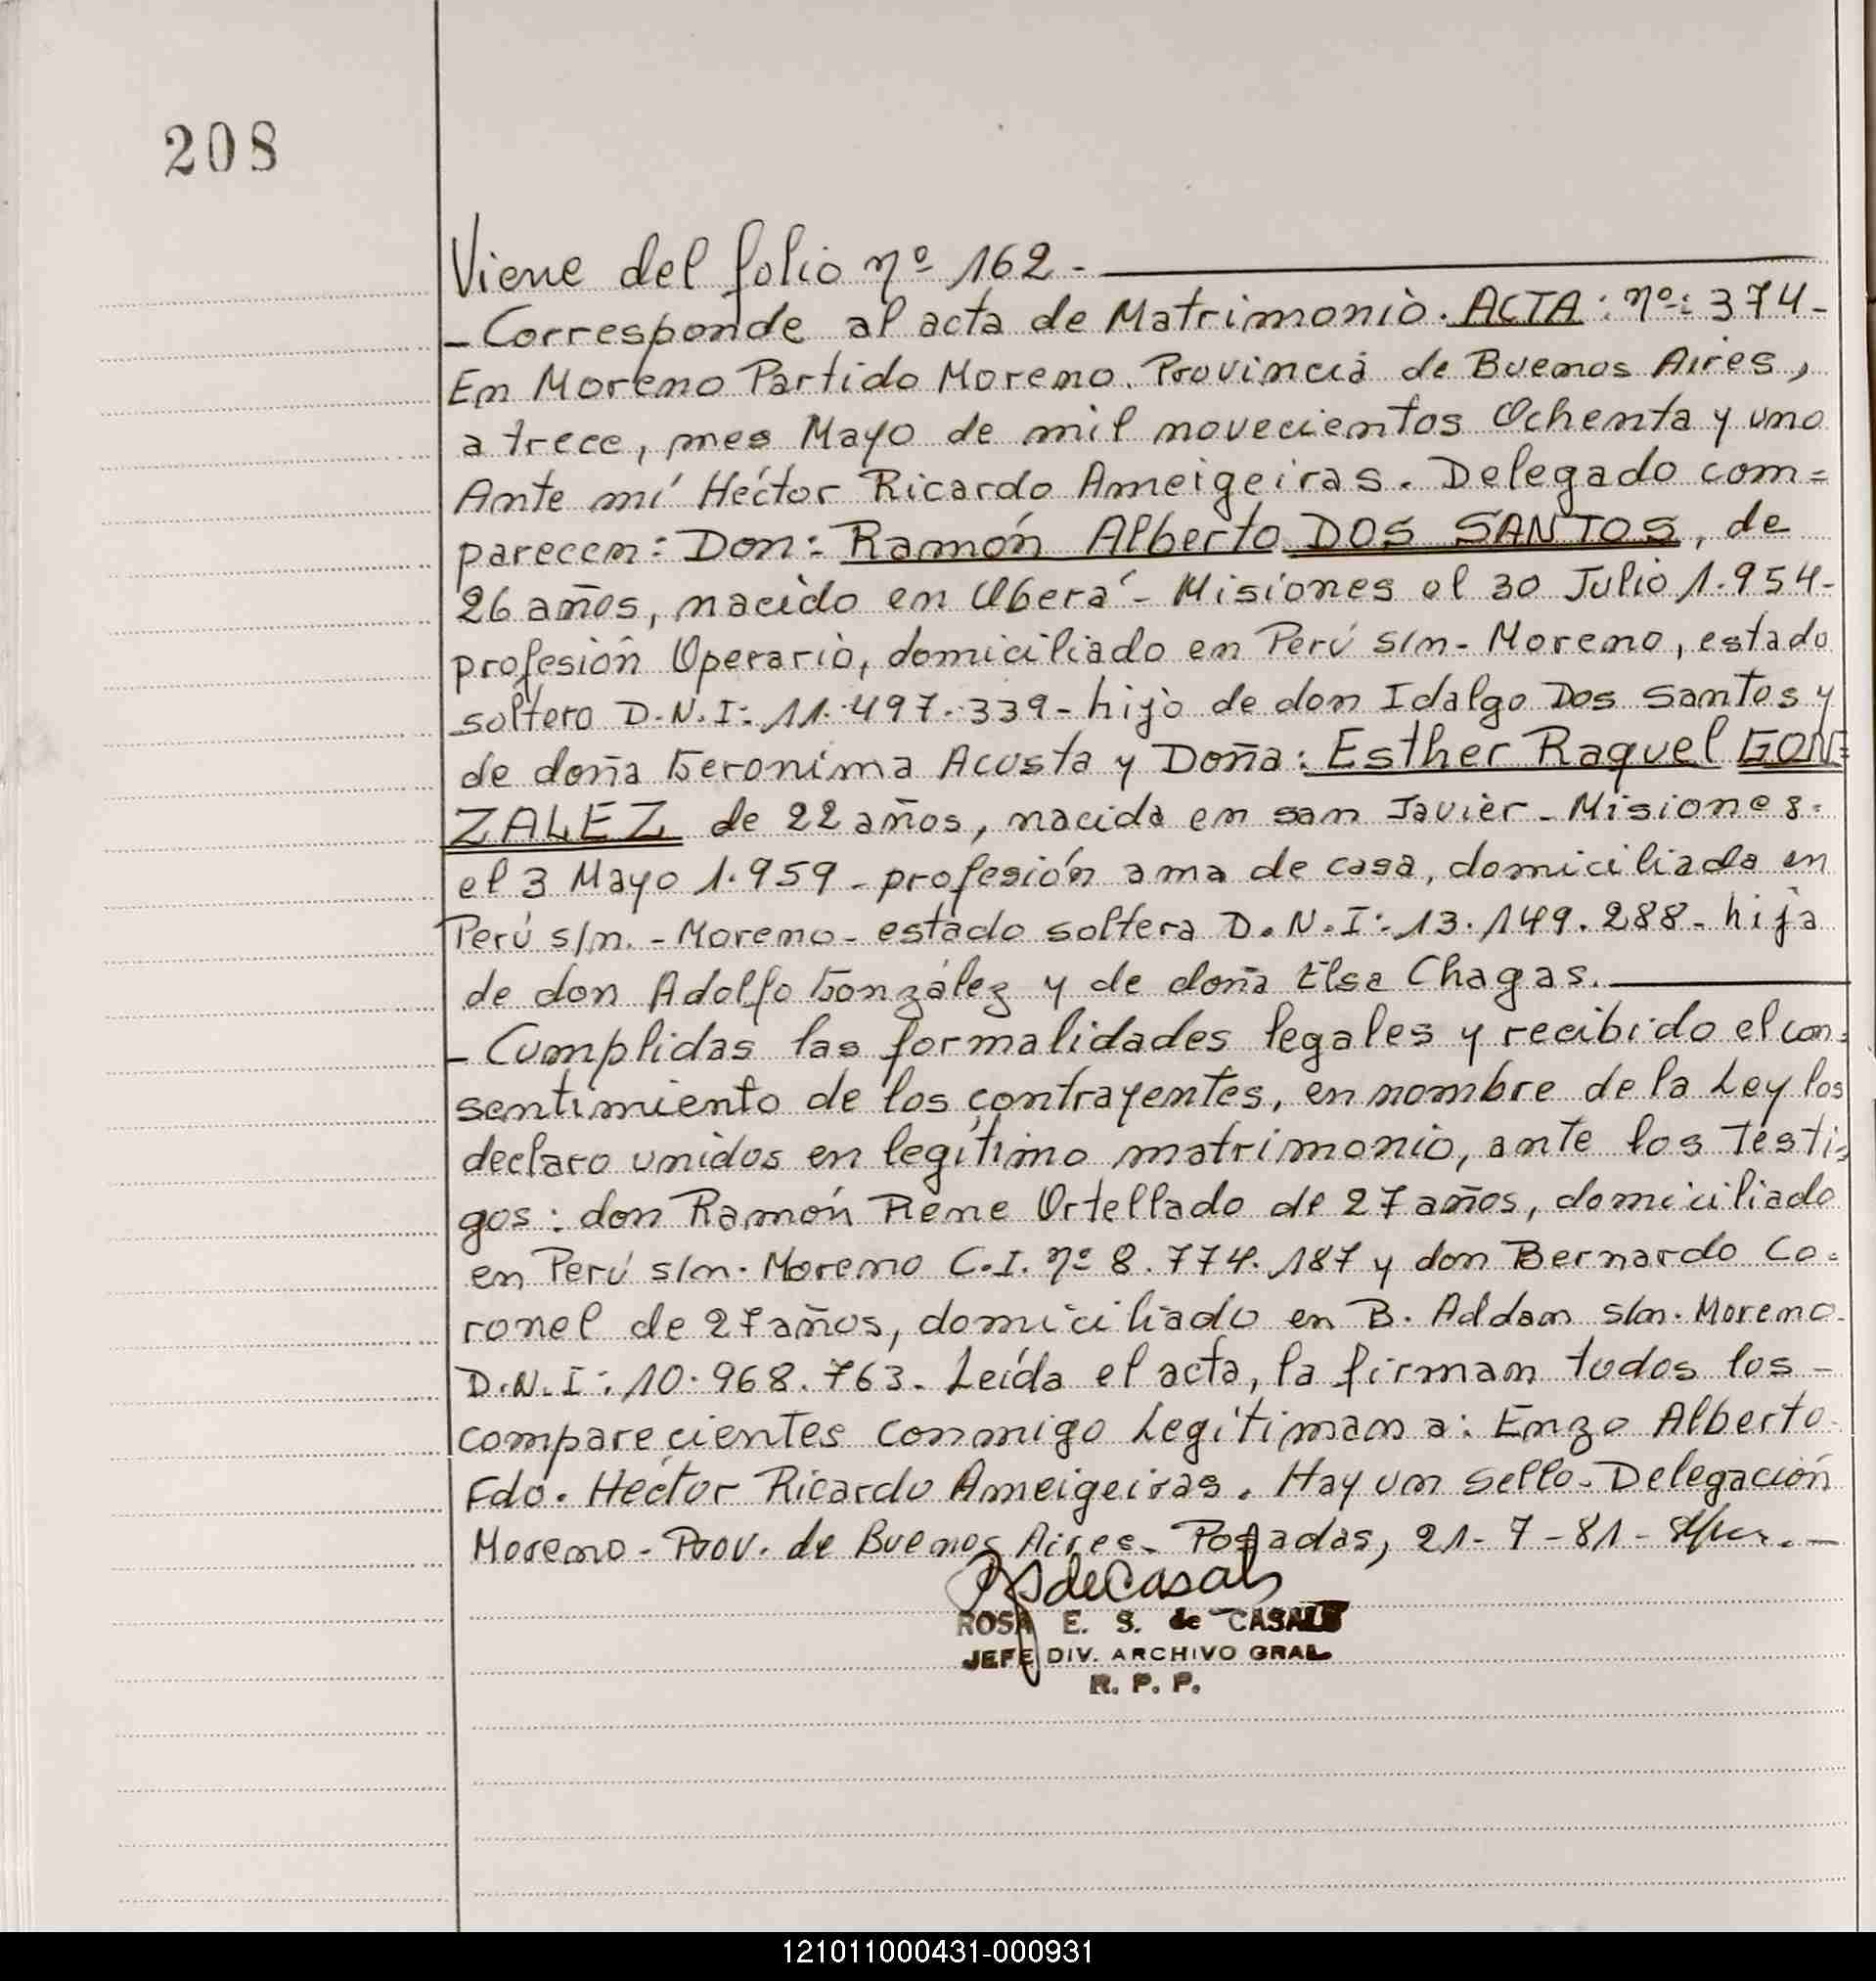 208
Viene del folio nº 162.-
- Corresponde al acta de Matrimonio. ACTA: nº: 374-
En Moreno Partido Moreno. Provincia de Buenos Aires,
a trece, mes Mayo de mil novecientos Ochenta y uno
Ante mí Héctor Ricardo Ameigeiras. Delegado com=
parecen: Don: Ramón Alberto DOS SANTOS, de
26 años, nacido en Oberá - Misiones el 30 Julio 1.954-
profesión Operario, domiciliado en Perú s/n- Moreno, estado
soltero D.N.I: 11.497.339- hijo de don Idalgo Dos Santos y
de doña Geronima Acosta y Doña: Esther Raquel GON=
ZALEZ de 22 años, nacida en san Javier - Misiones=
el 3 Mayo 1.959- profesión ama de casa, domiciliada en
Perú s/n.- Moreno- estado soltera D.N.I: 13.149.288- hija
de don Adolfo González y de doña Elsa Chagas.
- Cumplidas las formalidades legales y recibido el con=
sentimiento de los contrayentes, en nombre de la Ley los
declaro unidos en legítimo matrimonio, ante los Testi=
gos: don Ramón Rene Ortellado de 27 años, domiciliado
en Perú s/n. Moreno C.I. nº 8.774.187 y don Bernardo Co=
ronel de 27 años, domiciliado en B. Addam s/n. Moreno.
D.N.I: 10.968.763. Leída el acta, la firman todos los -
comparecientes conmigo Legitiman a: Enzo Alberto.
Fdo. Héctor Ricardo Ameigeiras. Hay un sello. Delegación
Moreno- Prov. de Buenos Aires. Posadas, 21-7-81-
RS de Casals
ROSA E. S. de CASALS
JEFE DIV. ARCHIVO GRAL
R. P. P.
121011000431-000931